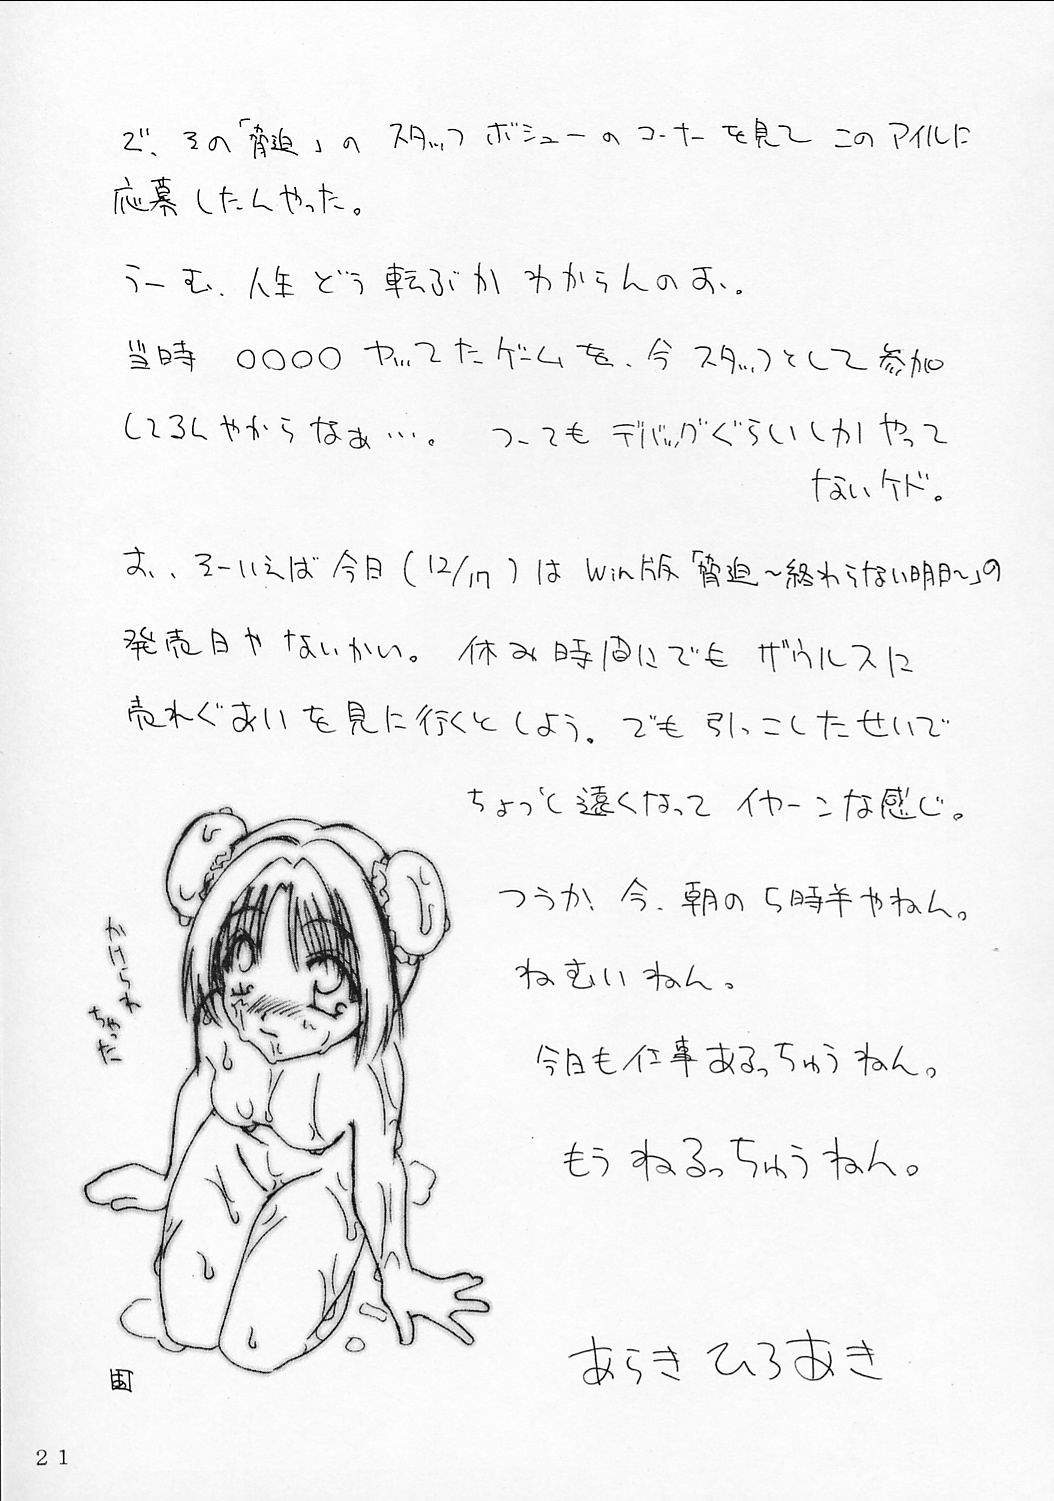 で、その「脅迫」の スタッフ ボシューのコーナーを見て このアイルに
応募したんやった。
うーむ、人生 どう転ぶか わからんのお、。
当時 〇〇〇〇 やってたゲームを、今 スタッフとして参加
してるんやからなぁ…。 つーても デバッグぐらいしか やって
ないケド。
お、、そーいえば今日(12/17)は Win版「脅迫~終わらない明日~」の
発売日や ないかい。 休み時間にでも ザウルスに
売れぐあいを見に行くとしよう。でも 引っこしたせいで
ちょっと遠くなって イヤーンな感じ。
つうか、今、朝の5時半やねん。
ねむいねん。
今日も仕事あるっちゅうねん。
もう ねるっちゅうねん。
かけられ
ちゃった
あらきひろあき
21